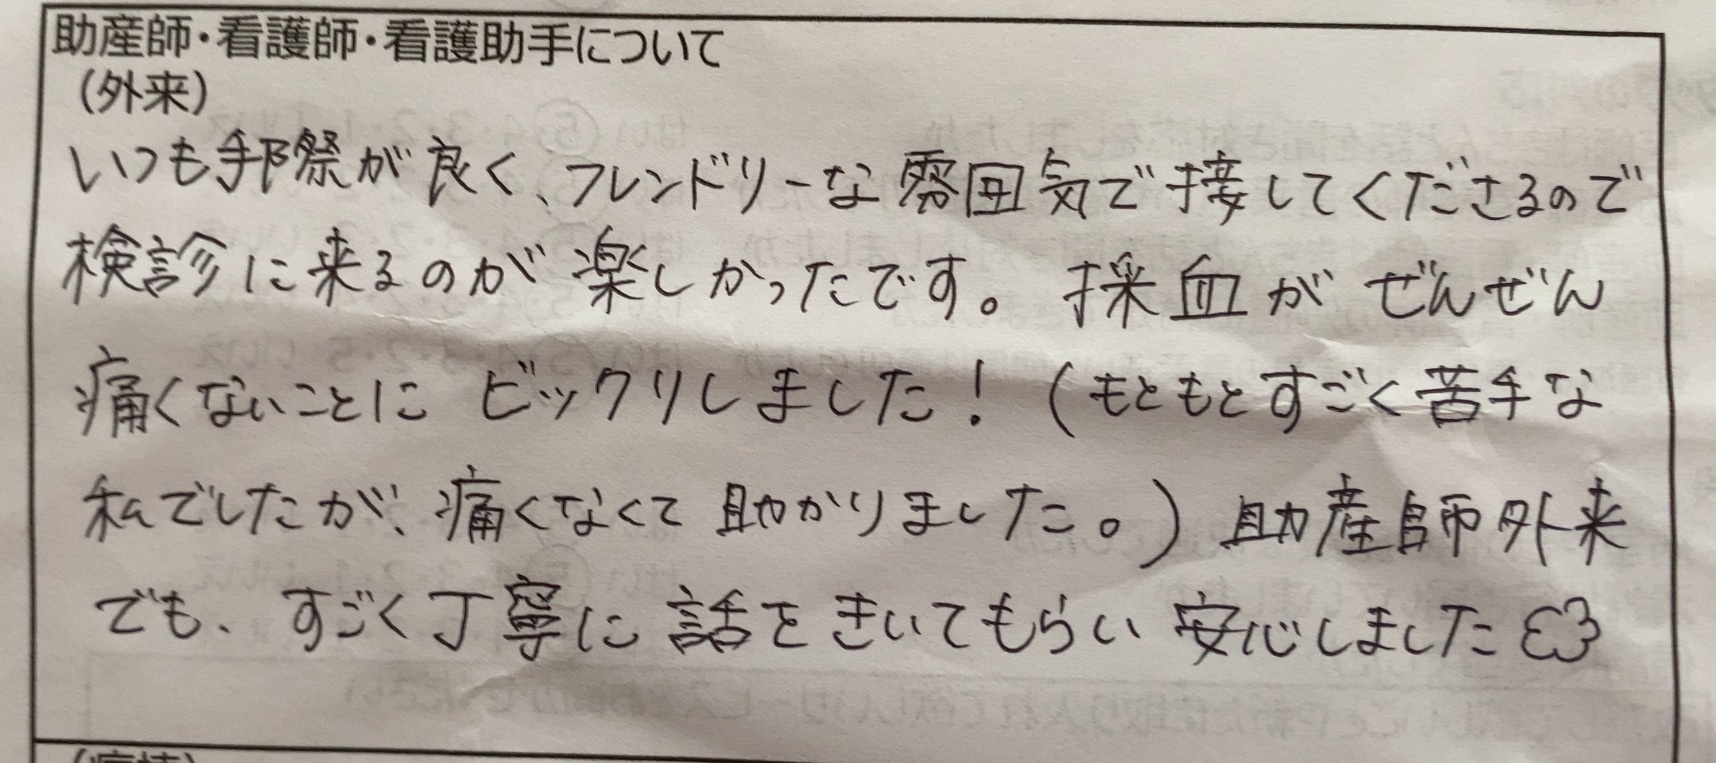 助産師・看護師・看護助手について
(外来)
いつも手際が良く、フレンドリーな雰囲気で接してくださるので
検診に来るのが楽しかったです。採血がぜんぜん
痛くないことにビックリしました！(もともとすごく苦手な
私でしたが、痛くなくて助かりました。)助産師外来
でも、すごく丁寧に話をきいてもらい安心しました
(病棟)